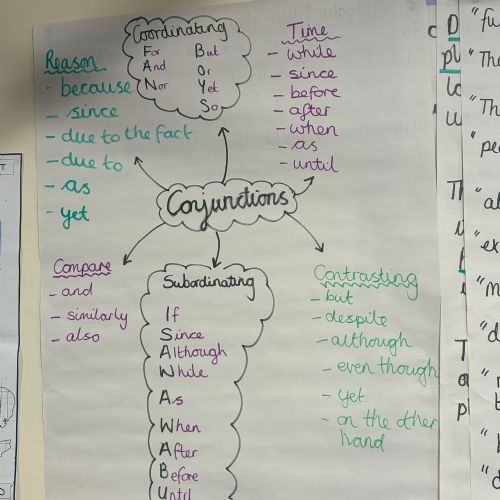 Coordinating
For But
And Or
Nor Yet
So
Time
- while
- since
- before
- after
- when
- as
- until
Reason
- because
- since
- due to the fact
- due to
- as
- yet
Conjunctions
Compare
- and
- similarly
- also
Subordinating
If
Since
Although
While
As
When
After
Before
Until
Contrasting
- but
- despite
- although
- even though
- yet
- on the other
hand